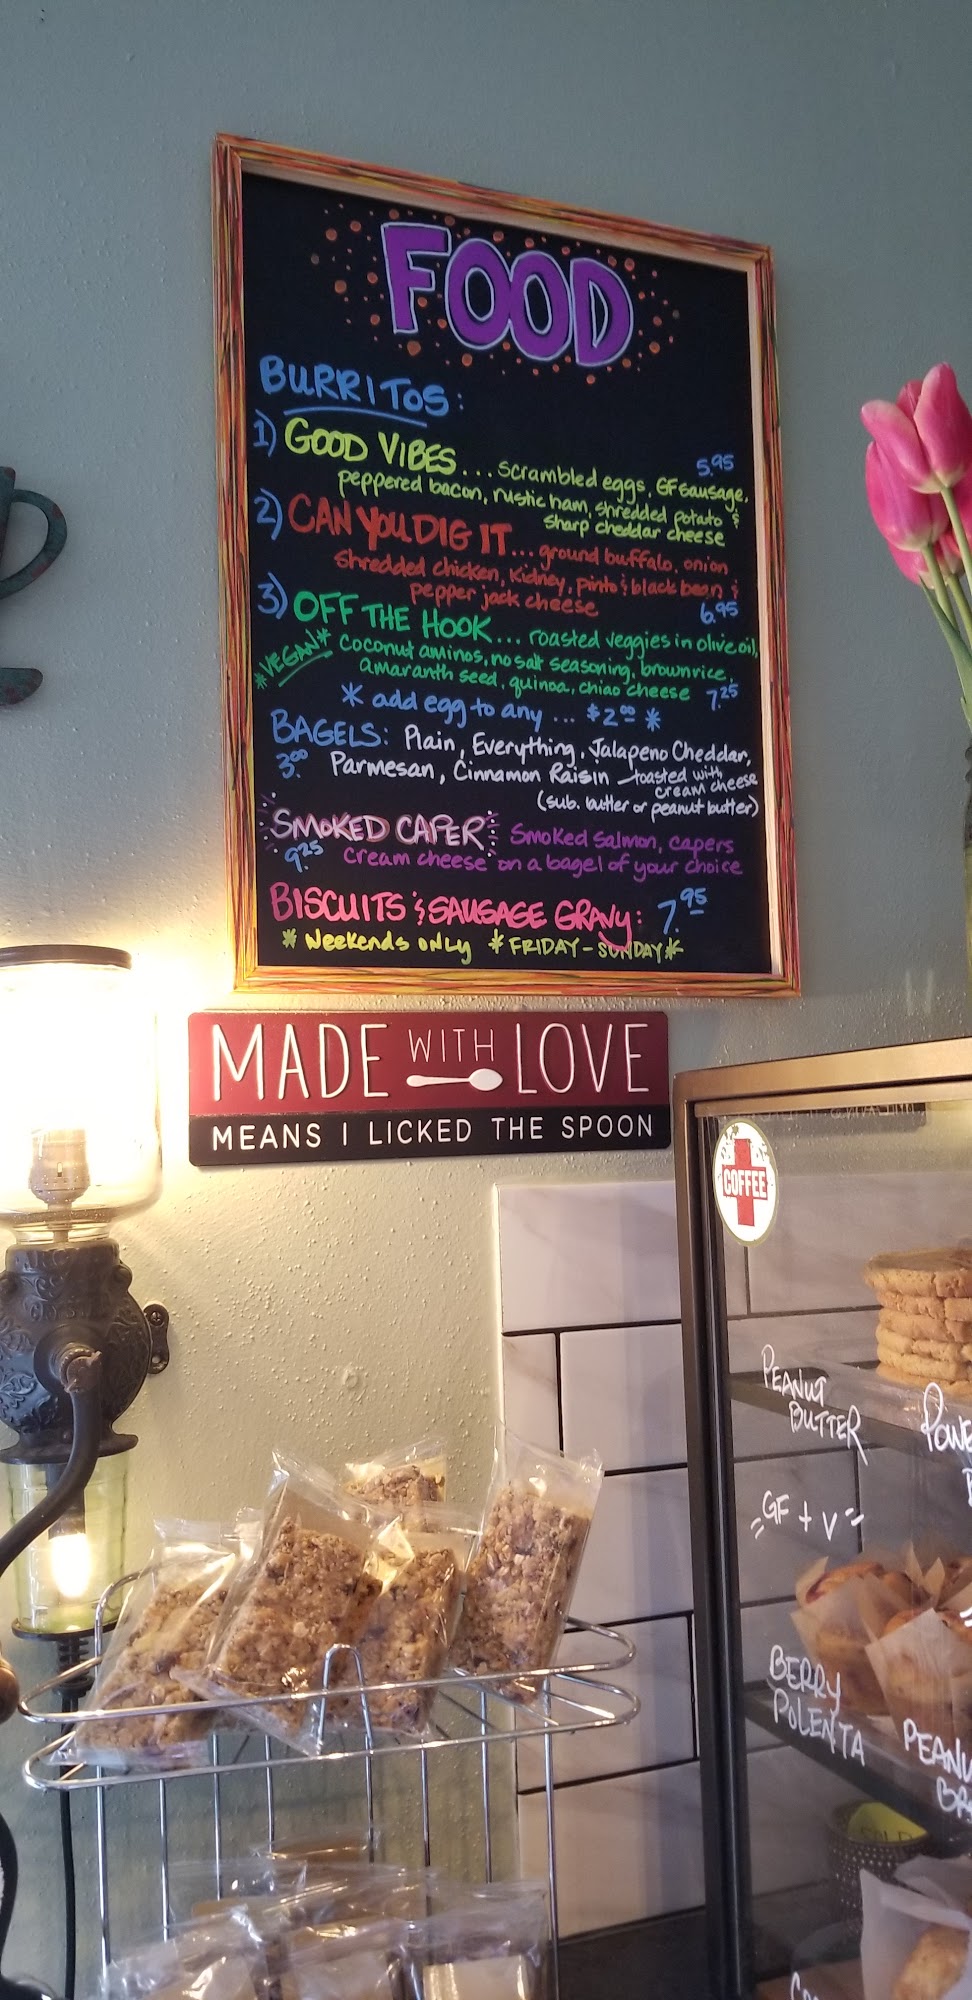 FOOD
BURRITOS:
1) GOOD VIBES... scrambled eggs, GF sausage, 5.95
peppered bacon, rustic ham, shredded potato &
sharp cheddar cheese
2) CAN YOU DIG IT... ground buffalo, onion
shredded chicken, kidney, pinto & black bean &
pepper jack cheese 6.95
3) OFF THE HOOK... roasted veggies in olive oil,
*VEGAN* coconut aminos, no salt seasoning, brown rice,
amaranth seed, quinoa, chiao cheese 7.25
* add egg to any ... $2.00 *
BAGELS: Plain, Everything, Jalapeno Cheddar,
3.00 Parmesan, Cinnamon Raisin - toasted with
cream cheese
(sub. butter or peanut butter)
SMOKED CAPER: Smoked salmon, capers
9.25 cream cheese on a bagel of your choice
BISCUITS & SAUSAGE GRAVY: 7.95
* Weekends ONLY * FRIDAY - SUNDAY *
MADE WITH LOVE
MEANS I LICKED THE SPOON
COFFEE
PEANUT
BUTTER
GF + V
BERRY
POLENTA